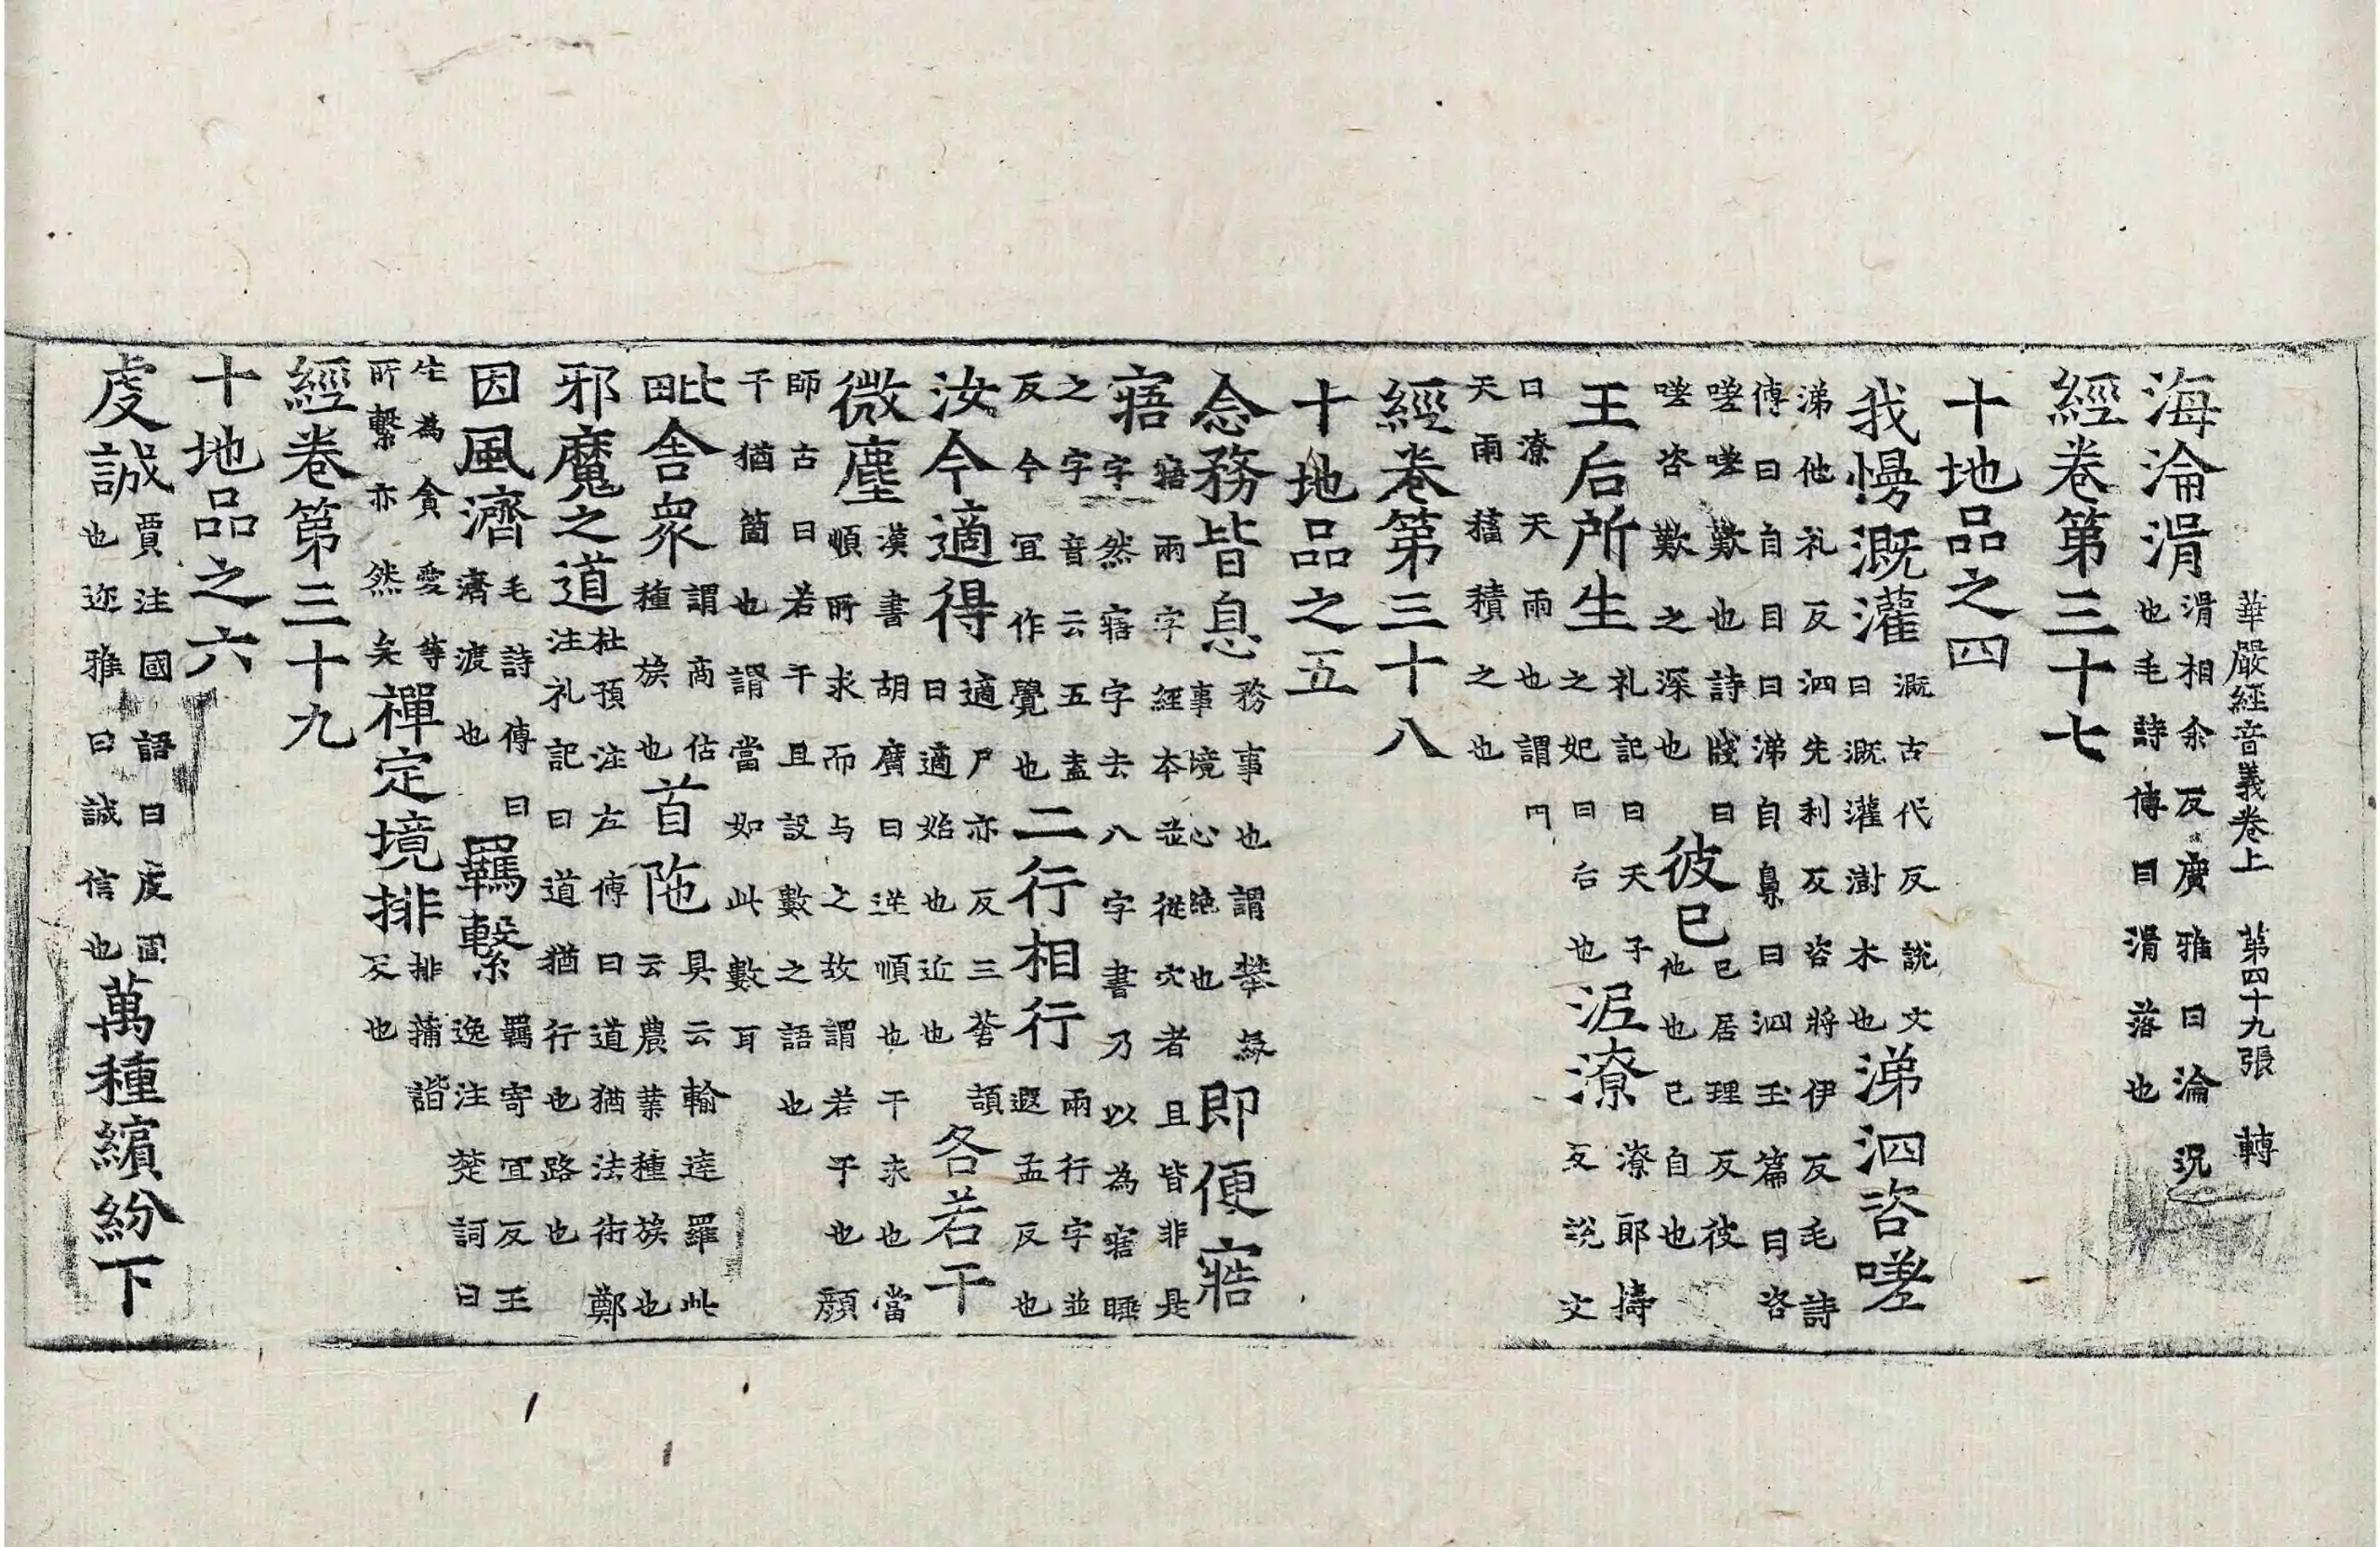 華嚴經音義卷上 第四十九張 轉
海淪湑湑相余反廣雅曰淪沉也毛詩傳曰湑落也
經卷第三十七
十地品之四
我慢溉灌溉古代反說文曰溉灌澍木也涕泗咨嗟
涕他礼反泗先利反咨將伊反毛詩傳曰自目曰涕自鼻曰泗玉篇曰咨
嗟嗟歎也詩牋曰嗟咨歎之深也彼已已居理反彼他也已自也
王后所生礼記曰天子之妃曰后也泥潦潦郎擣反說文
曰潦天雨也謂天雨積之也
經卷第三十八
十地品之五
念務皆息務事也謂攀緣事境心绝也即便寤
寤寤兩字經本並從穴者且皆非是字然寤字去八字書乃以為寤睡
之字音云五盍反今宜作覺也二行相行兩行字並遐孟反也
汝今適得適尸亦反三荅頡曰適始也近也各若干
微塵漢書胡廣曰逆順也干求也當順所求而与之故謂若干也顏
師古曰若干且設數之語也干猶箇也謂當如此數耳
毗舍衆謂商估種族也首陁具云輸達羅此云農業種族也
邪魔之道杜預注左傳曰道猶法術鄭注礼記曰道猶行也路也
因風濟毛詩傳曰濟渡也羈繫羈寄宜反王逸注楚詞曰
生為貪愛等所繫亦然矣禪定境排排蒲諧反也
經卷第三十九
十地品之六
虔誠賈注國語曰虔固也迩雅曰誠信也萬種繽紛下